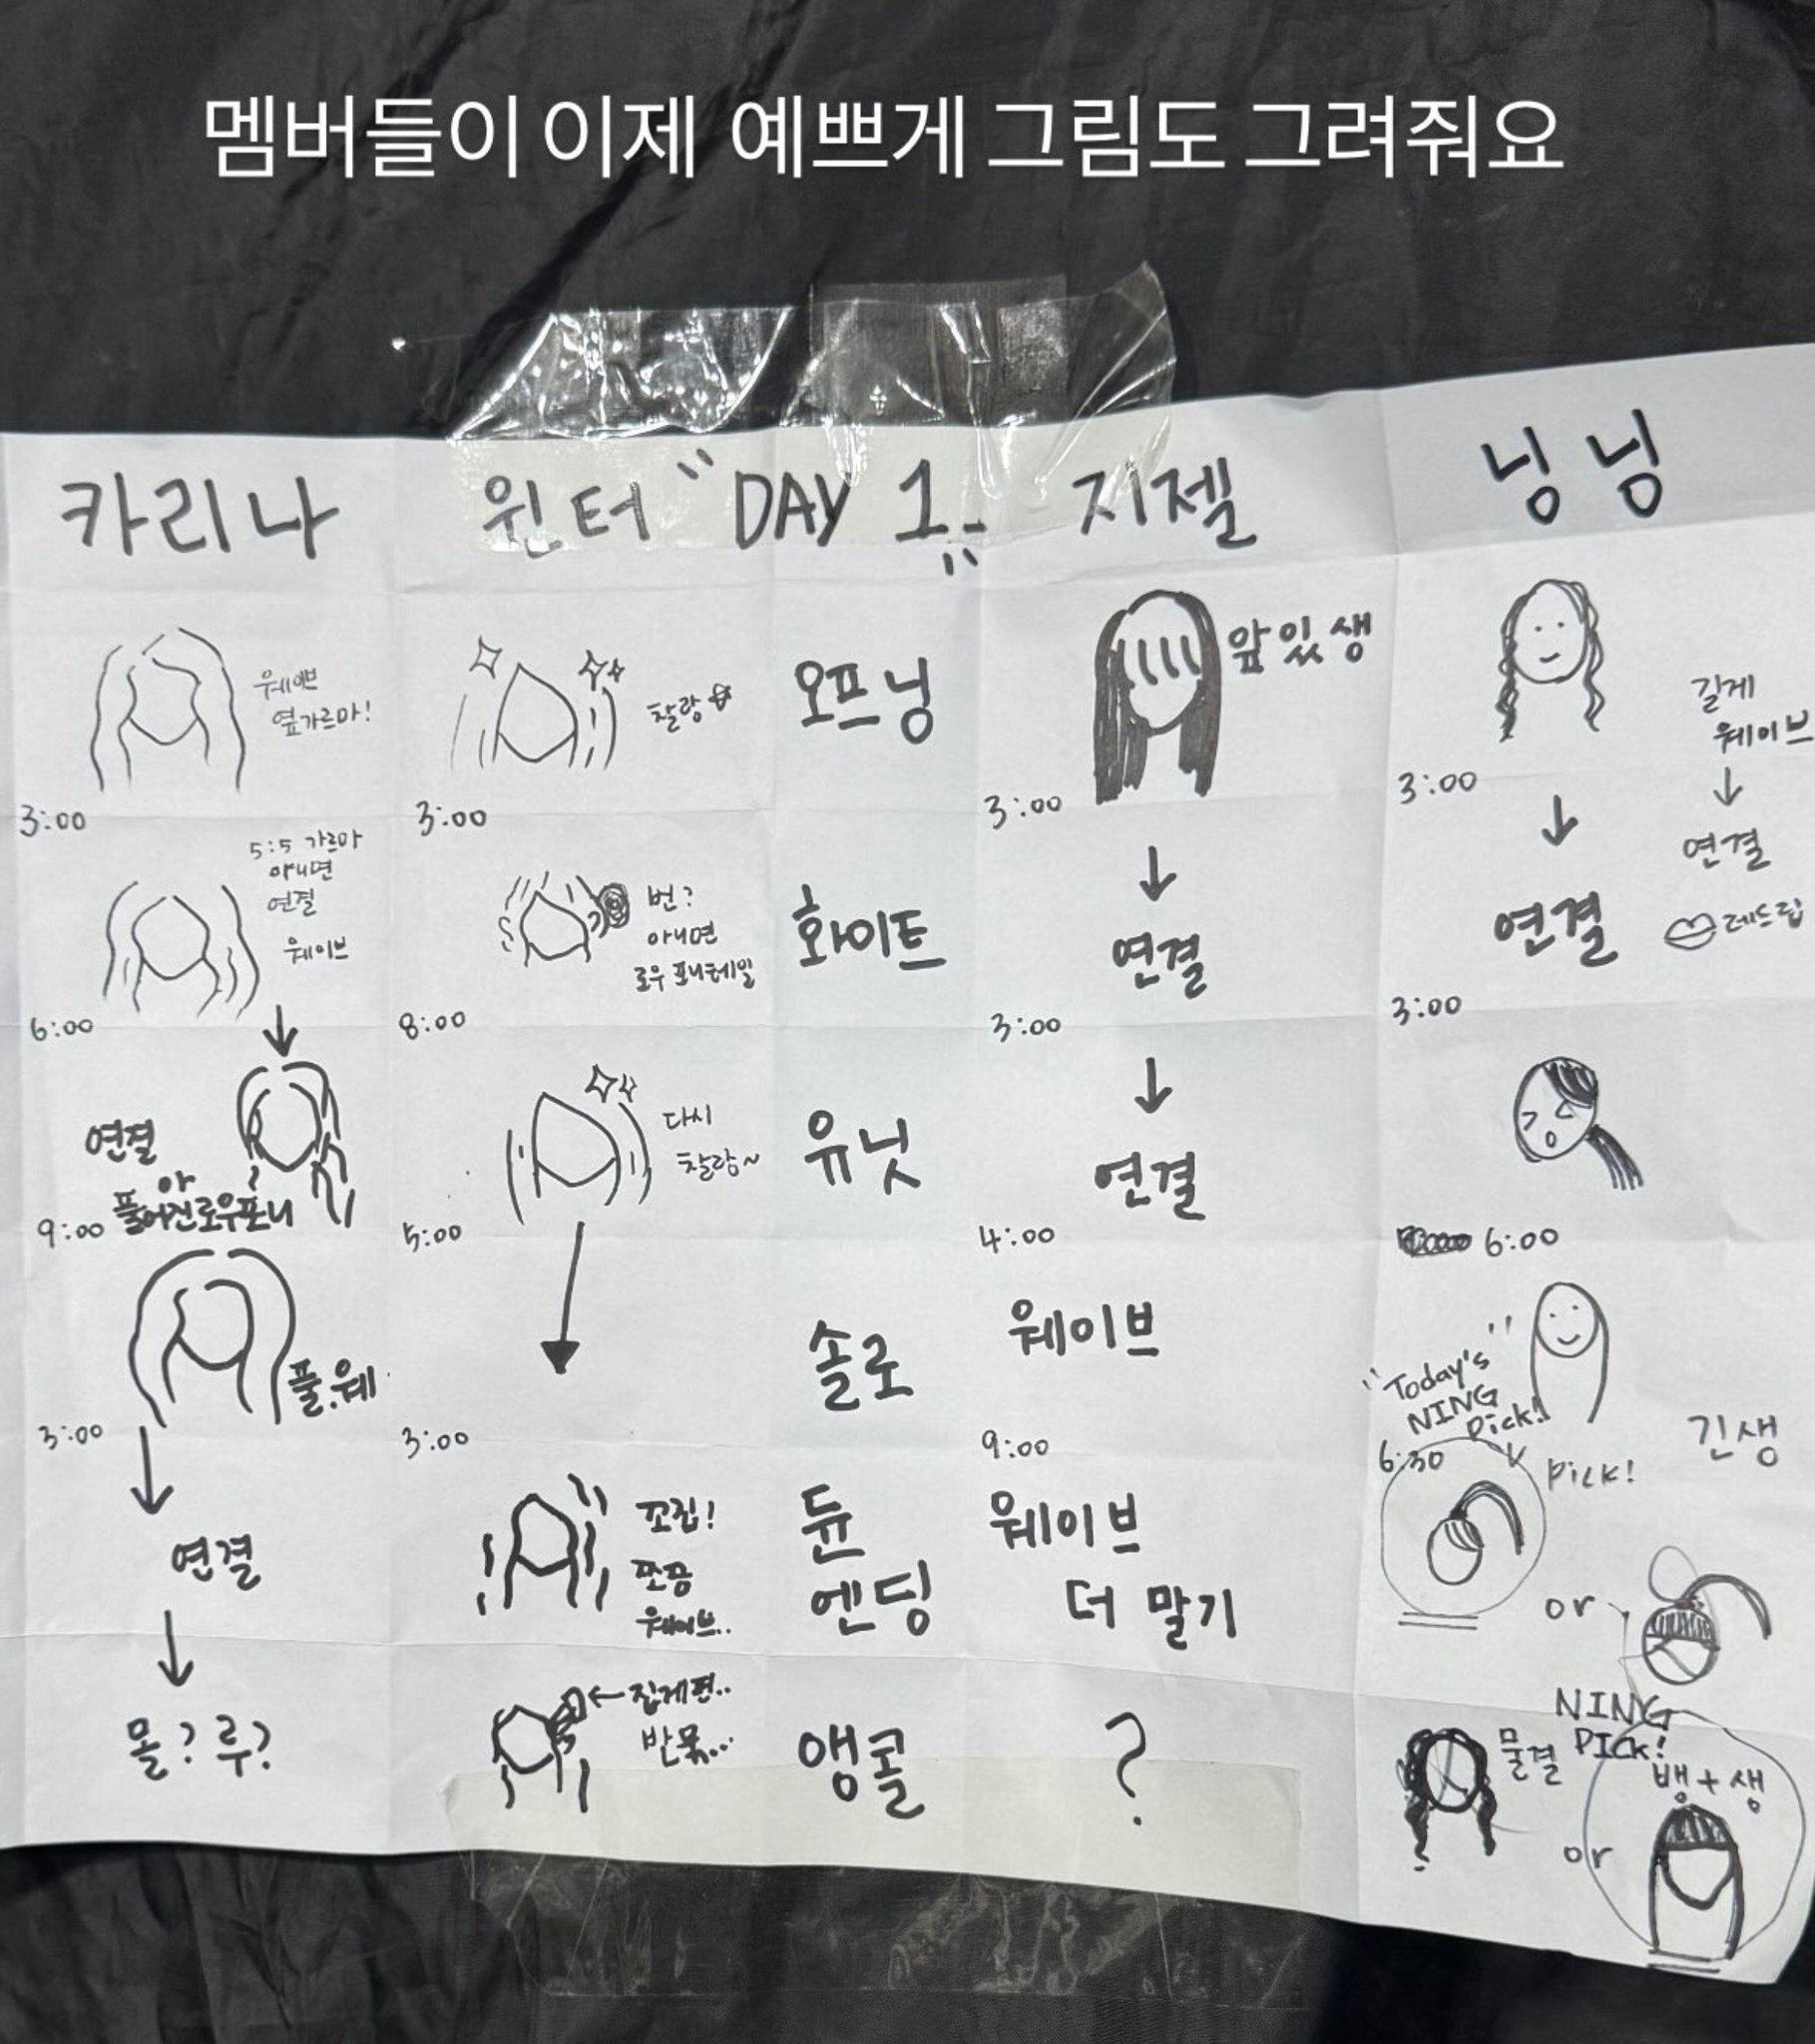 멤버들이 이제 예쁘게 그림도 그려줘요
카리나
윈터
"DAY 1"
지젤
닝닝
웨이브
옆가르마!
찰랑
오프닝
앞있생
길게
웨이브
↓
연결
레드립
3:00
3:00
3:00
3:00
5:5 가르마
아니면
연결
웨이브
번?
아니면
로우 포니테일
화이트
↓
연결
↓
연결
6:00
8:00
3:00
3:00
↓
연결
아
풀어진로우포니
다시
찰랑~
유닛
↓
연결
9:00
5:00
4:00
6:00
풀.웨
↓
솔로
웨이브
"Today's
NING
Pick!"
긴생
3:00
3:00
9:00
6:30
↓
연결
쪼금
웨이브..
듄
엔딩
웨이브
더 말기
PICK!
or
↓
몰?루?
←집게핀..
반묶...
앵콜
?
물결
or
NING
PICK!
뱅+생